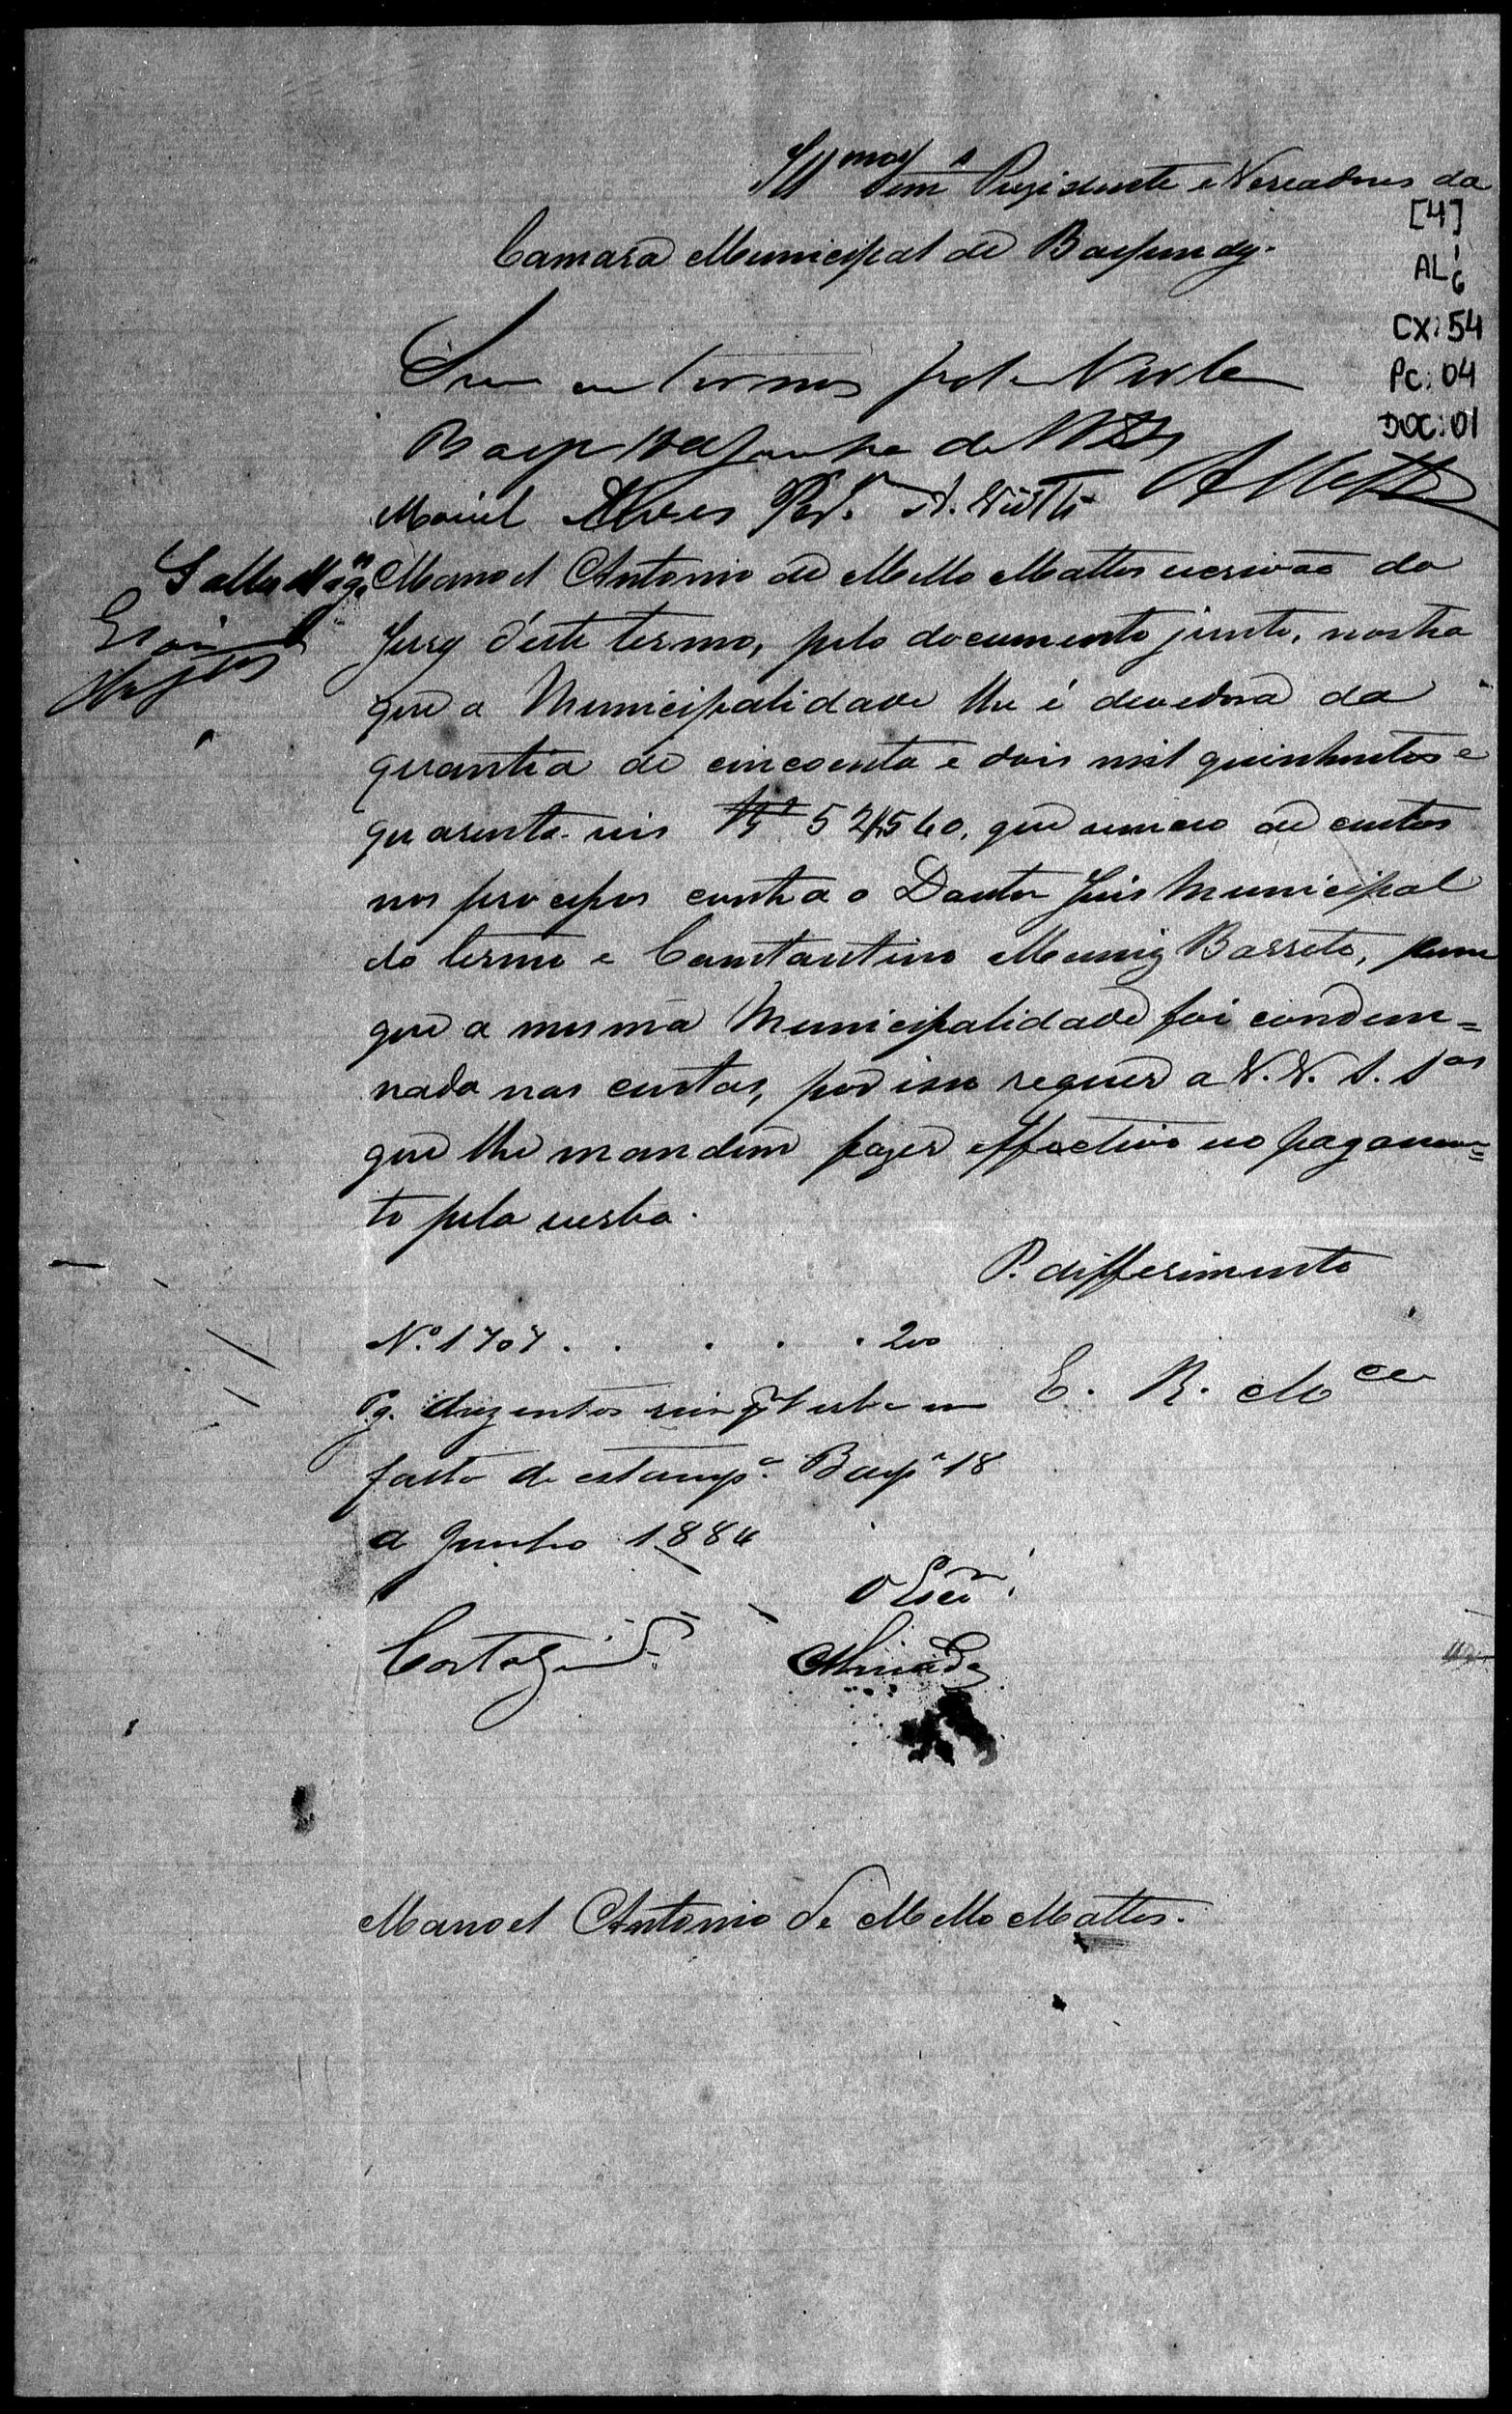 Ill.mos Snr.s Prezidente e Vereadores da
[4]
Camara Municipal de Baependy.
AL 6
CX: 54
PC: 04
DOC: 01
Manoel Antonio de Mello Mattos escrivão do
Jury d'este termo, pelo documento junto, mostra
que a Municipalidade lhe é devedora da
quantia de cincoenta e dois mil quinhentos e
quarenta reis 52$540, que venceo de custas
nos processos contra o Doutor Juis Municipal
do termo e Constantino Muniz Barreto, em
que a mesma Municipalidade foi condem=
nada nas custas, por isso requer a V.V. S. S.as
que lhe mandem fazer effectivo eo pagamen=
to pela verba.
P. differimento
Nº 1707 . . . . . 200
E. R. M.ce
Pg. duzentos reis por verba em
falta de estamp.a Baep.y 18
de Junho 1884
O Escr.m
Almeida
Manoel Antonio de Mello Mattos.